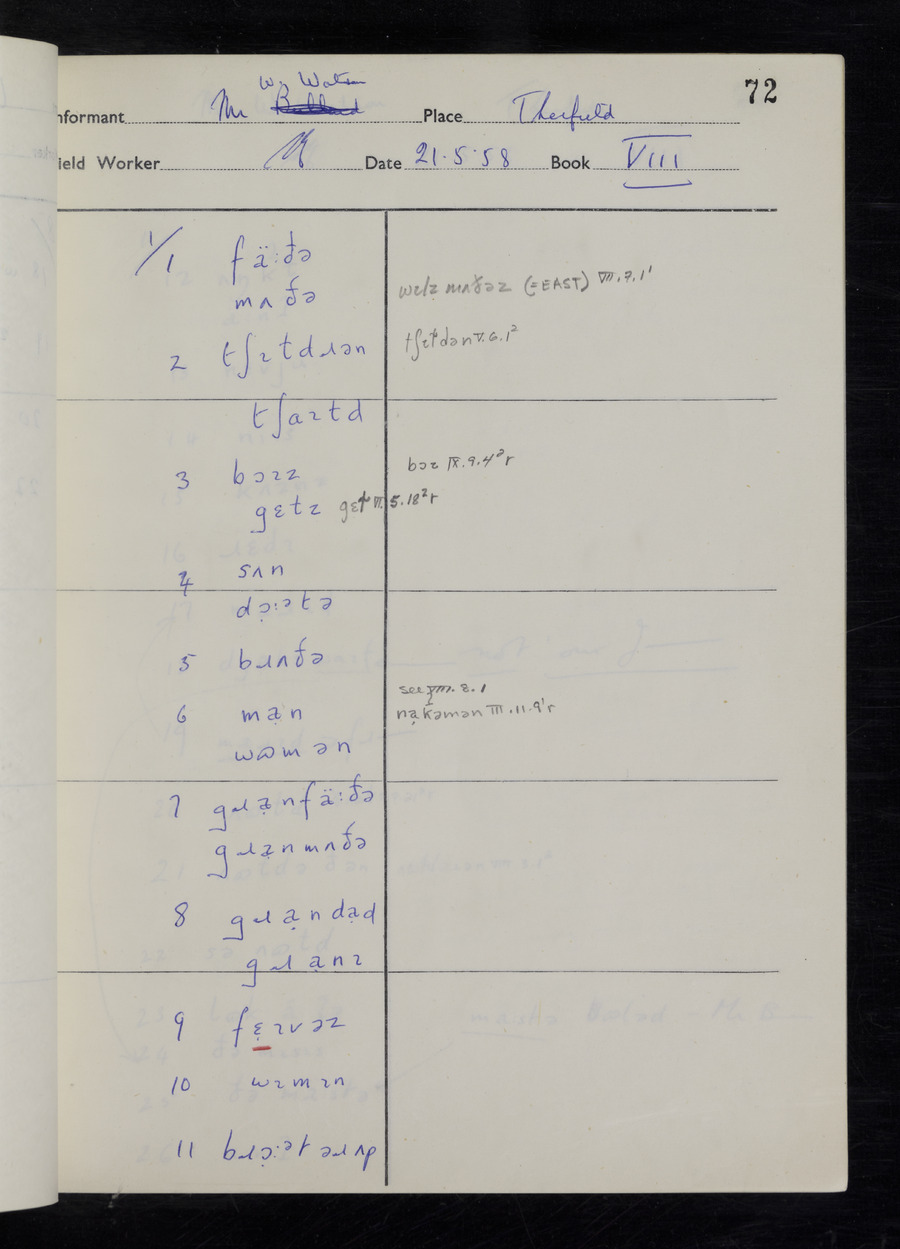 72
W. Watson
Informant Mr Place Therfield
Field Worker Date 21.5.58 Book VIII
1/1 fä:ðə
mʌðə
wɪlz mʌðəz (=EAST) VII.7.1'
2 tʃɪɫdɹən
tʃɪɫdən V.6.1²
tʃaɪɫd
3 bɔɪz
bɔɪ IX.9.4²r
gɛɫz gɛɫ VI.5.18²r
4 sʌn
dɔ:əɫə
5 bɹʌðə
see VIII.8.1
6 mạn
nạk̄əmən III.11.9'r
wɷmən
7 gɹạnfä:ðə
gɹạnmʌðə
8 gɹạndạd
gɹạnɪ
9 fɛ̣ɪvəz
10 wɪmɪn
11 bɹɔ:əɫ əɹ ʌp